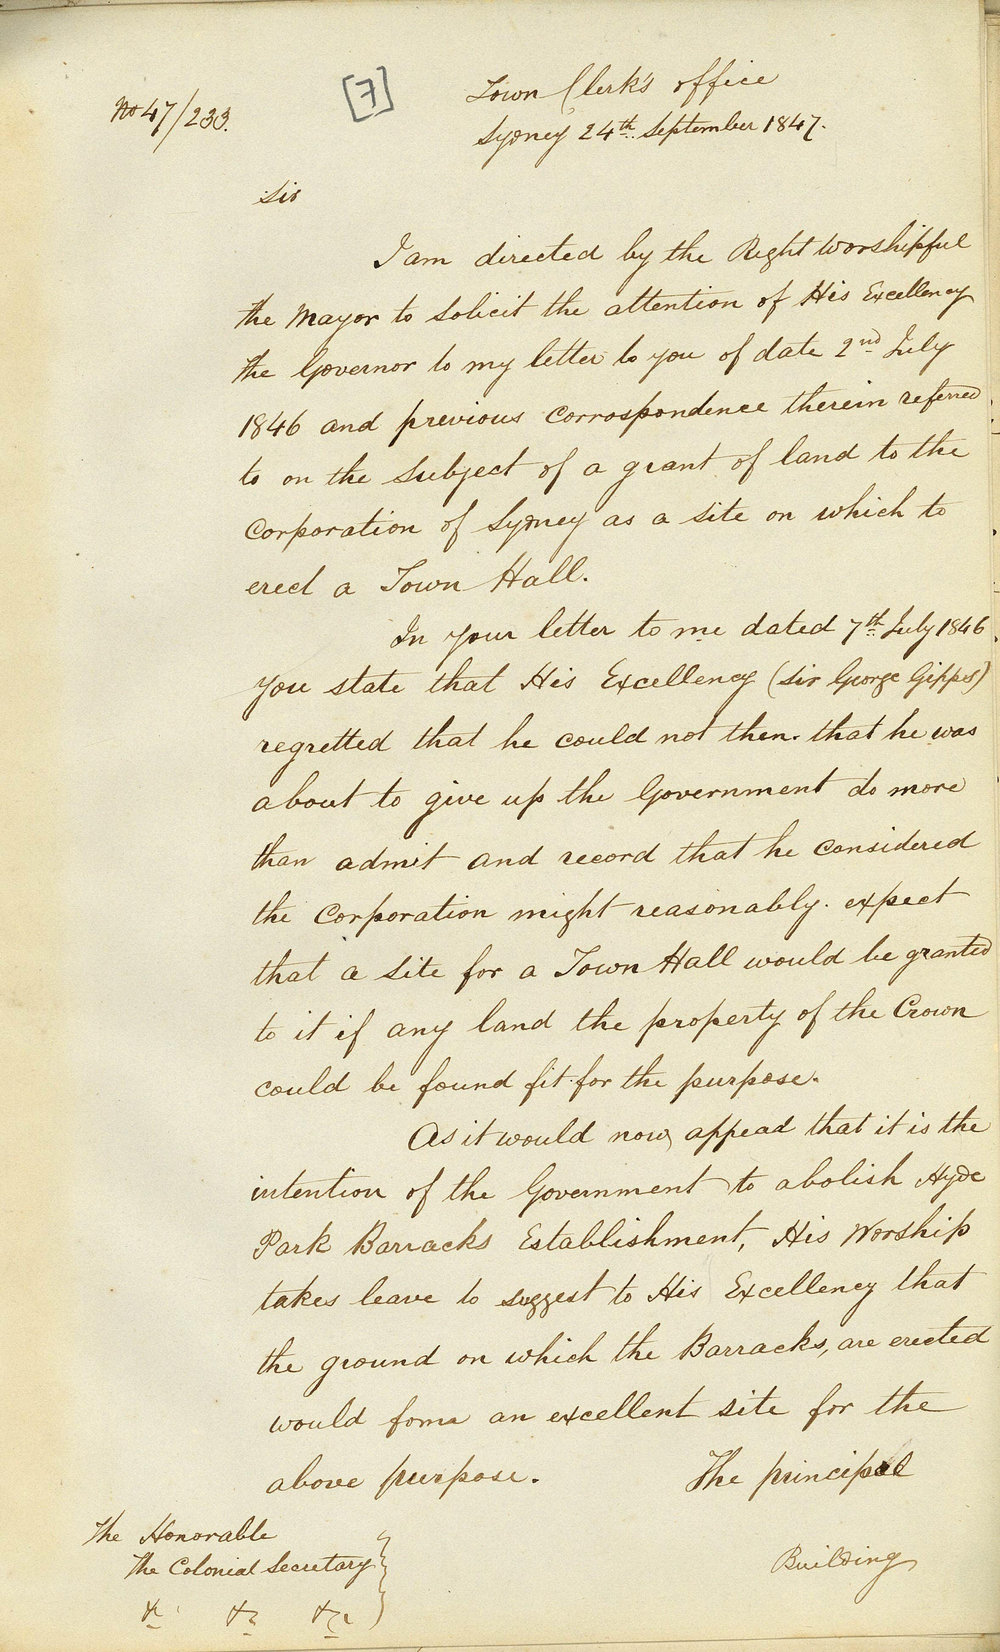 No 47/233.
[7]
Town Clerk's office
Sydney 24th September 1847.
Sir
I am directed by the Right Worshipful
the Mayor to solicit the attention of His Excellency
the Governor to my letter to you of date 2nd July
1846 and previous Correspondence therein referred
to on the subject of a grant of land to the
Corporation of Sydney as a site on which to
erect a Town Hall.
In your letter to me dated 7th July 1846
you state that His Excellency (Sir George Gipps)
regretted that he could not then. that he was
about to give up the Government do more
than admit and record that he considered
the Corporation might reasonably. expect
that a site for a Town Hall would be granted
to it if any land the property of the Crown
could be found fit for the purpose.
As it would now appear that it is the
intention of the Government to abolish Hyde
Park Barracks Establishment, His Worship
takes leave to suggest to His Excellency that
the ground on which the Barracks, are erected
would form an excellent site for the
above purpose. The principal
The Honorable
The Colonial Secretary
&c &c &c
Building